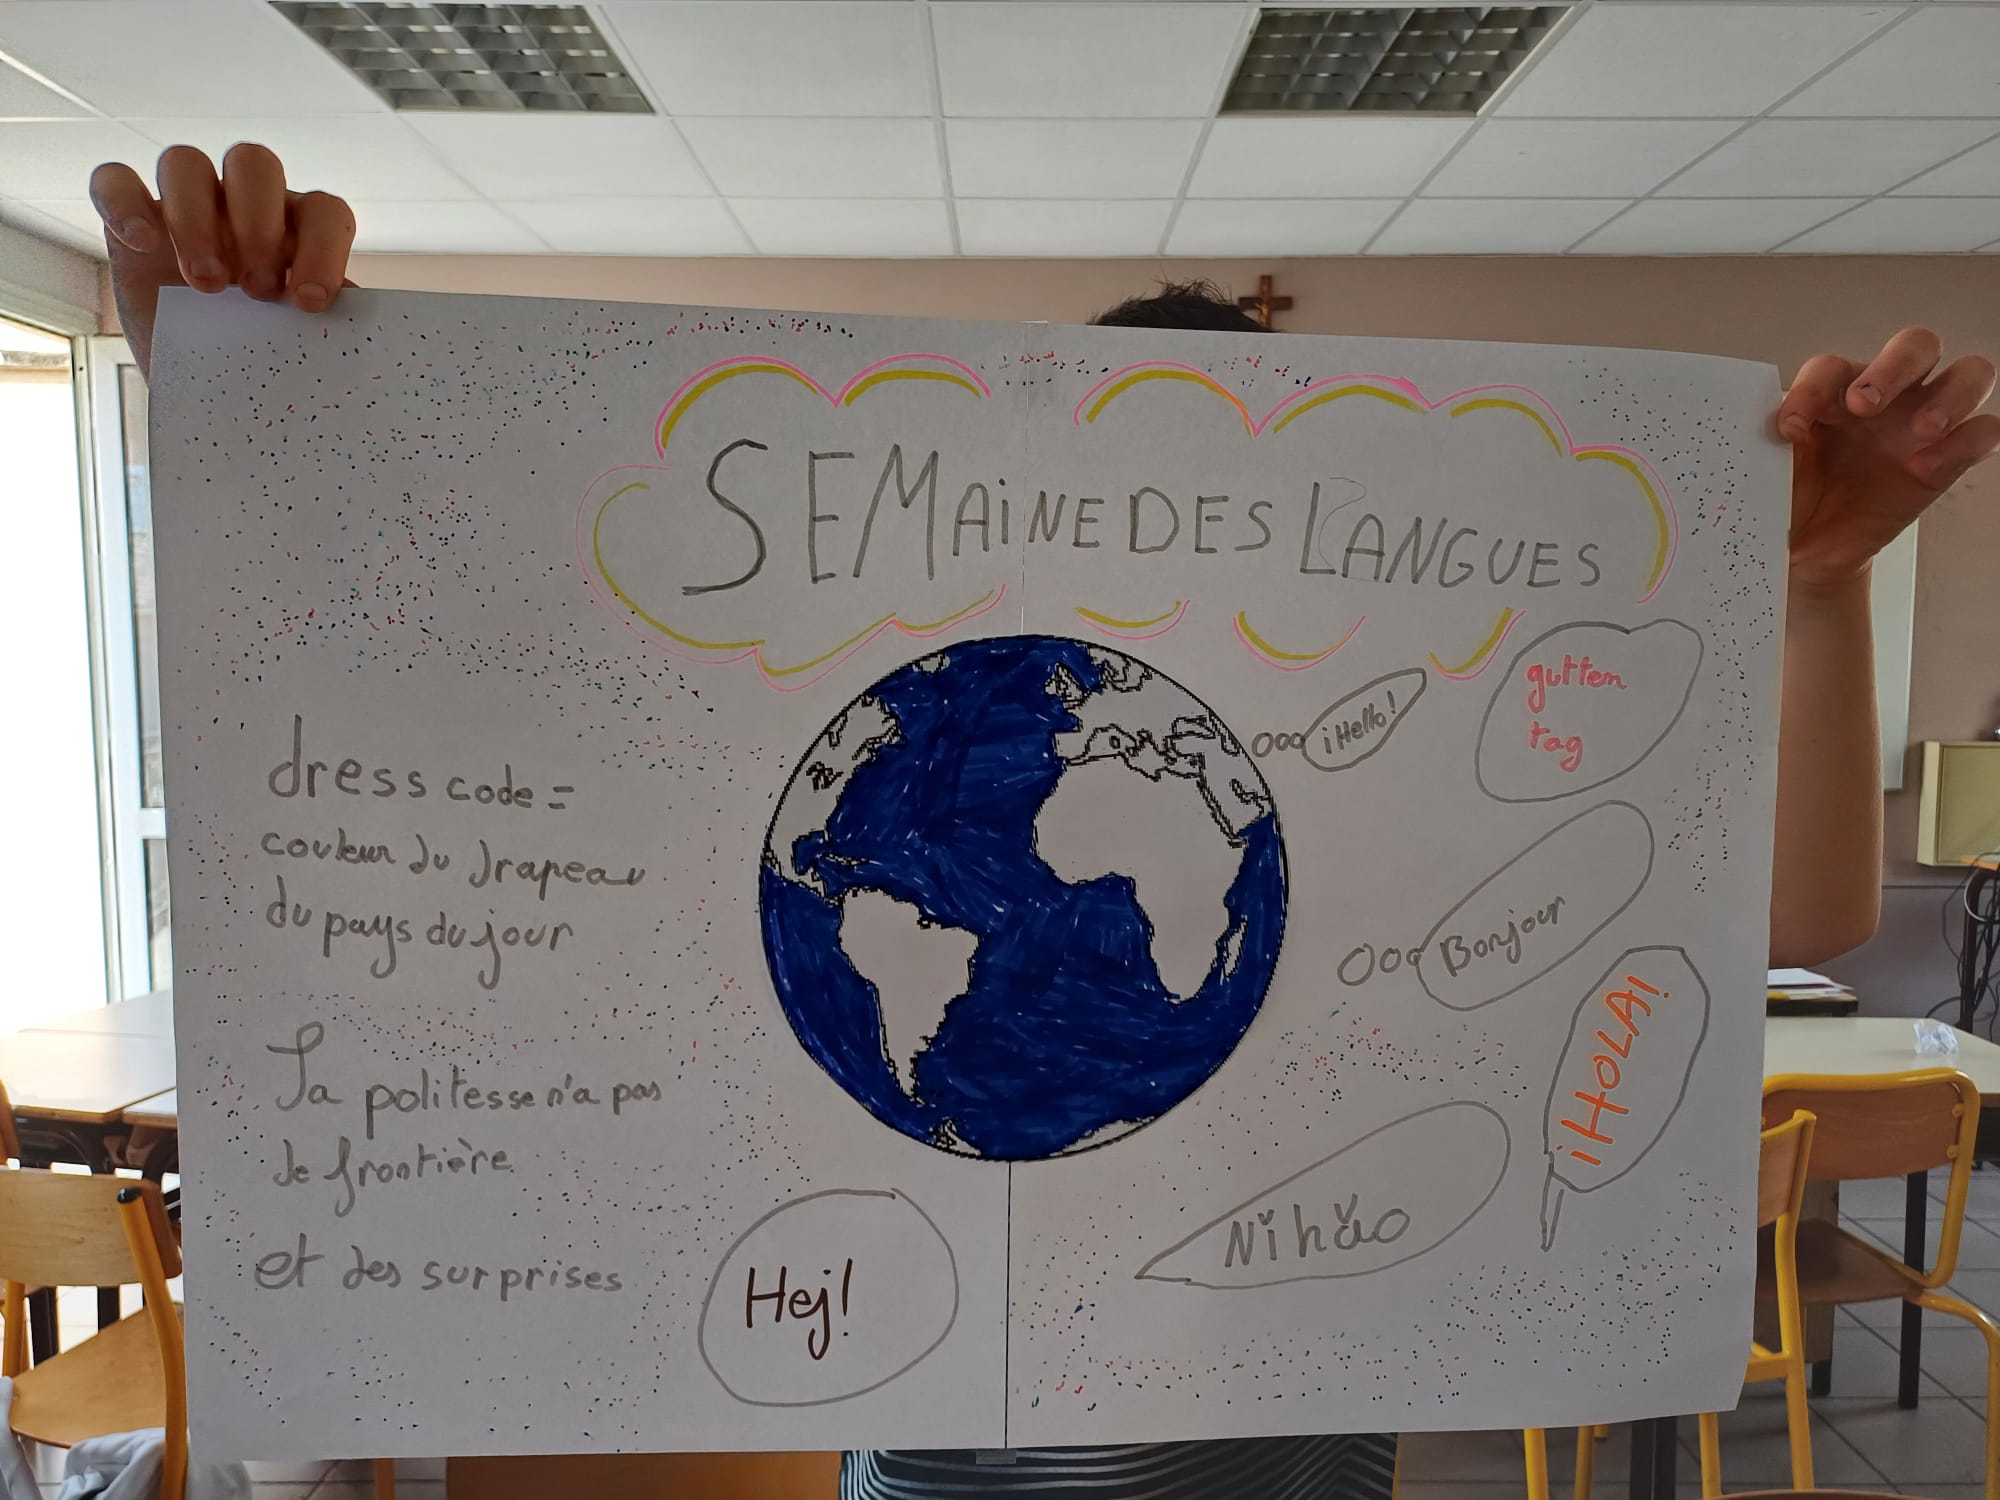 SEMAiNE DES LANGUES
dress code =
couleur du drapeau
du pays du jour
La politesse n'a pas
de frontière
et des surprises
¡Hello!
gutten
tag
Bonjour
¡HOLA!
Nǐ hǎo
Hej!